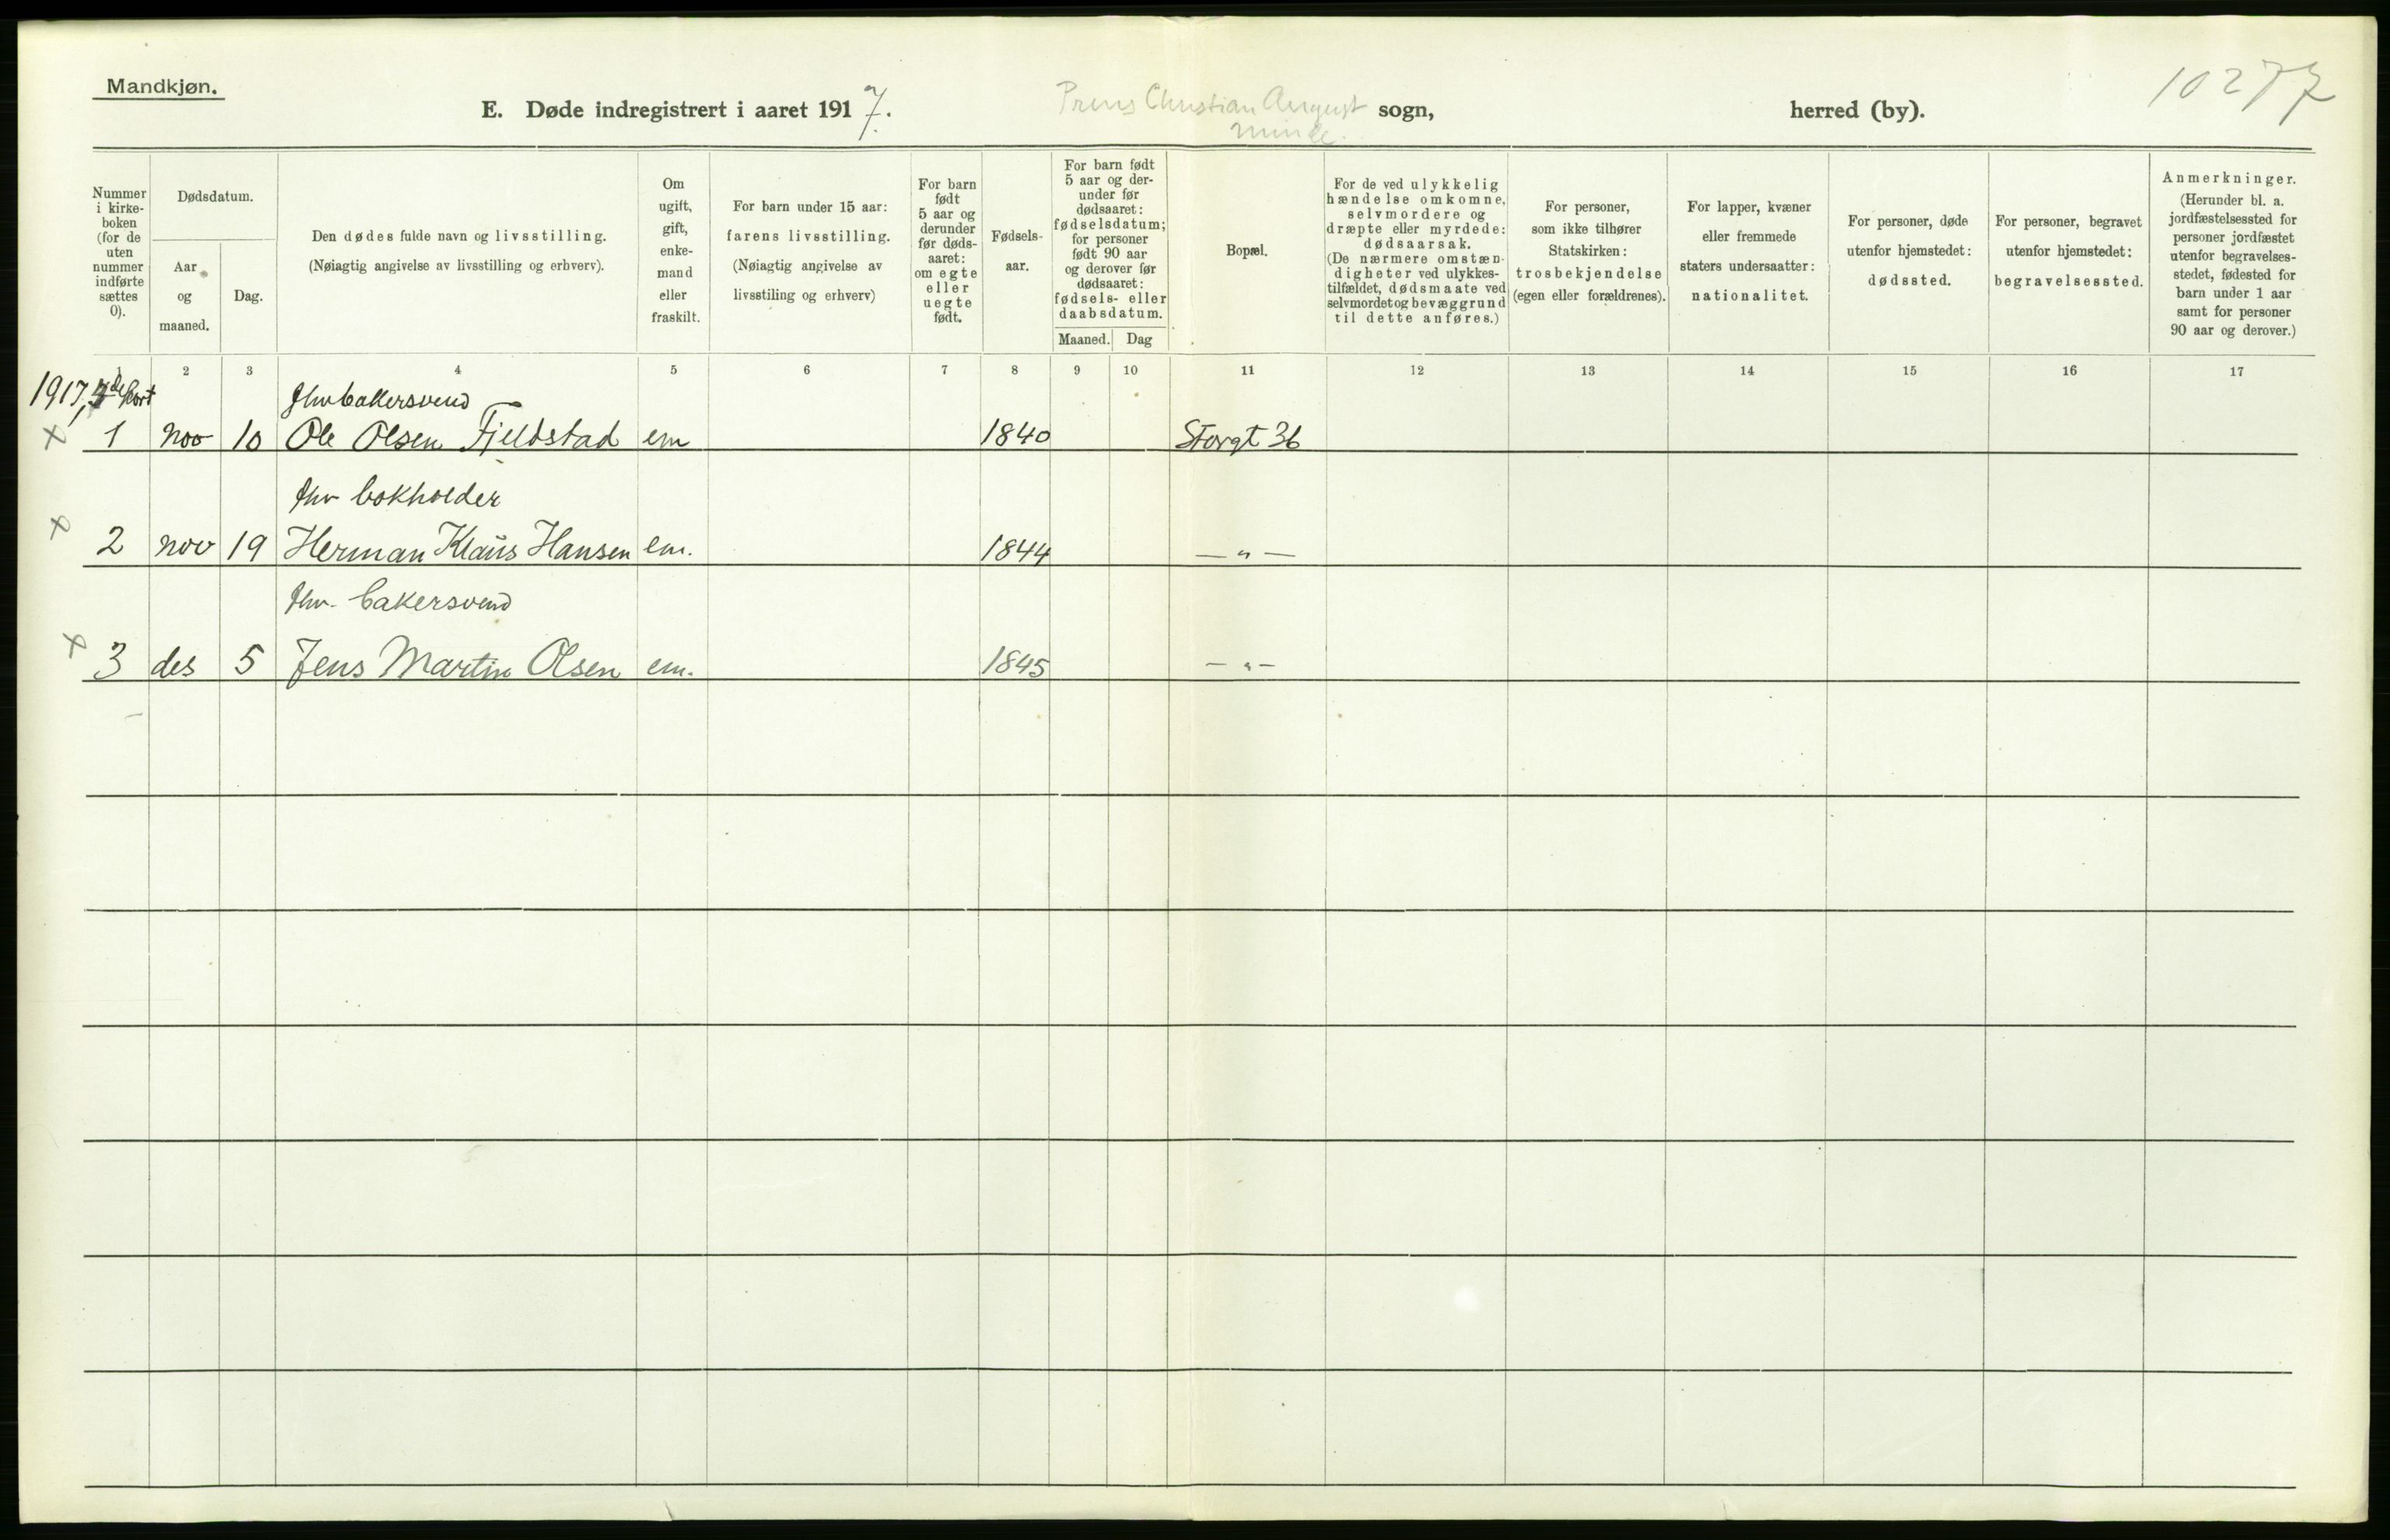 Mandkjøn.
E. Døde indregistrert i aaret 1917. Prins Christian August minde. sogn, herred (by).
10277
Nummer i kirke- boken (for de uten nummer indførte sættes 0).
Dødsdatum.
Aar og maaned.
Dag.
Den dødes fulde navn og livsstilling.
(Nøiagtig angivelse av livsstilling og erhverv).
Om ugift, gift, enke- mand eller fraskilt.
For barn under 15 aar: farens livsstilling.
(Nøiagtig angivelse av livsstiling og erhverv)
For barn født 5 aar og derunder før døds- aaret: om egte eller uegte født.
Fødsels- aar.
For barn født 5 aar og der- under før dødsaaret: fødselsdatum; for personer født 90 aar og derover før dødsaaret: fødsels- eller daabsdatum.
Maaned.
Dag
Bopæl.
For de ved ulykkelig hændelse omkomne, selvmordere og dræpte eller myrdede: dødsaarsak.
(De nærmere omstæn- digheter ved ulykkes- tilfældet, dødsmaate ved selvmordet og bevæggrund til dette anføres.)
For personer, som ikke tilhører Statskirken: trosbekjendelse (egen eller forældrenes).
For lapper, kvæner eller fremmede staters undersaatter: nationalitet.
For personer, døde utenfor hjemstedet: dødssted.
For personer, begravet utenfor hjemstedet: begravelsessted.
Anmerkninger.
(Herunder bl. a. jordfæstelsessted for personer jordfæstet utenfor begravelses- stedet, fødested for barn under 1 aar samt for personer 90 aar og derover.)
2 3 4 5 6 7 8 9 10 11 12 13 14 15 16 17
1917,
fhv bakersvend
x 1 nov 10 Ole Olsen Fjeldstad em 1840 Storgt 36
fhv bokholder
x 2 nov 19 Herman Klaus Hansen em. 1844 — " —
fhv. bakersvend
x 3 des 5 Jens Martin Olsen em. 1845 — " —